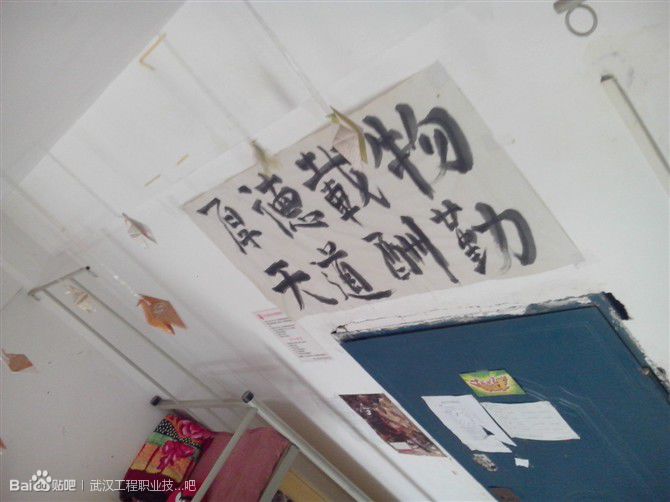 厚德載物
天道酬勤
Baidu贴吧 | 武汉工程职业技...吧